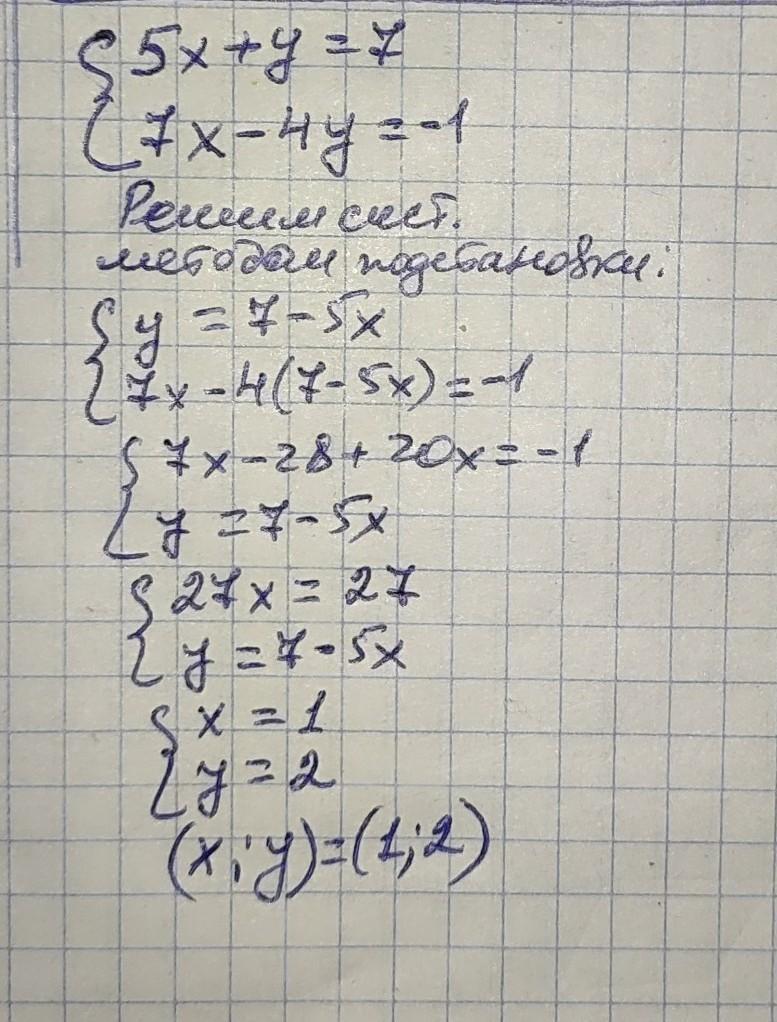 { 5x + y = 7
7x - 4y = -1
Решим сист.
методом подстановки:
{ y = 7 - 5x
7x - 4(7 - 5x) = -1
{ 7x - 28 + 20x = -1
y = 7 - 5x
{ 27x = 27
y = 7 - 5x
{ x = 1
y = 2
(x; y) = (1; 2)